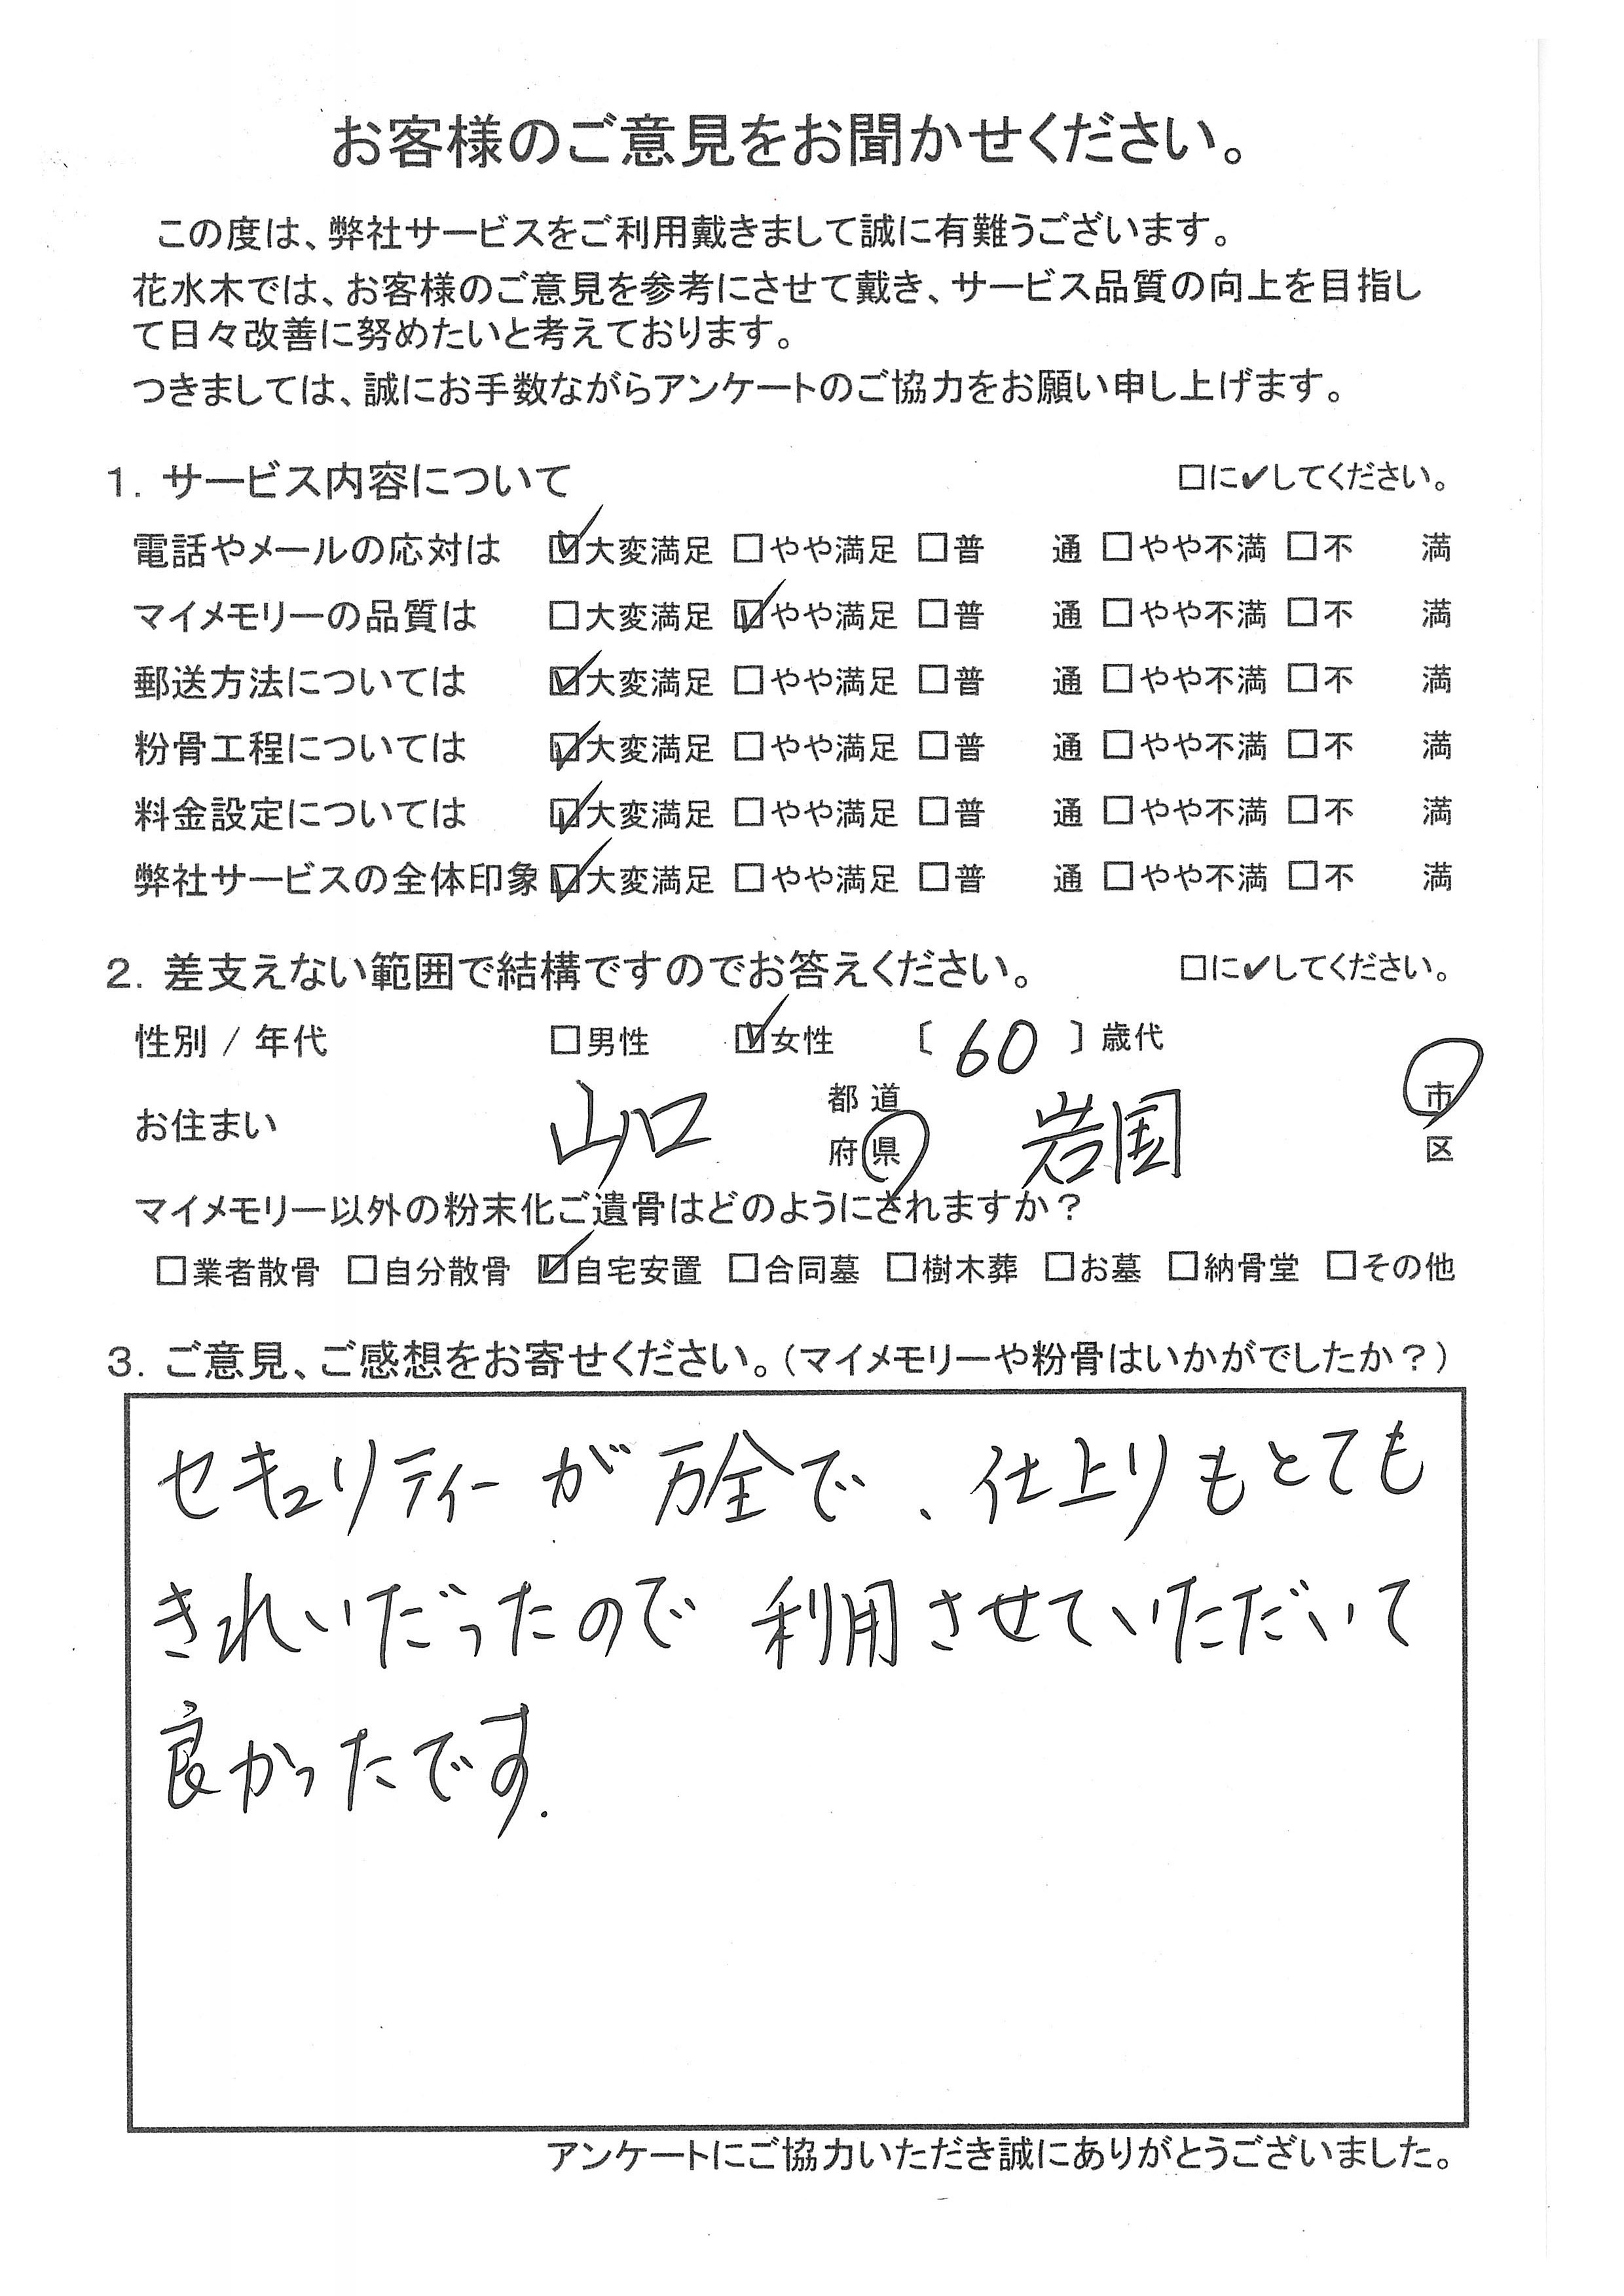 お客様のご意見をお聞かせください。
この度は、弊社サービスをご利用戴きまして誠に有難うございます。
花水木では、お客様のご意見を参考にさせて戴き、サービス品質の向上を目指し
て日々改善に努めたいと考えております。
つきましては、誠にお手数ながらアンケートのご協力をお願い申し上げます。
1. サービス内容について □に✔してください。
電話やメールの応対は ☑大変満足 □やや満足 □普 通 □やや不満 □不 満
マイメモリーの品質は □大変満足 ☑やや満足 □普 通 □やや不満 □不 満
郵送方法については ☑大変満足 □やや満足 □普 通 □やや不満 □不 満
粉骨工程については ☑大変満足 □やや満足 □普 通 □やや不満 □不 満
料金設定については ☑大変満足 □やや満足 □普 通 □やや不満 □不 満
弊社サービスの全体印象 ☑大変満足 □やや満足 □普 通 □やや不満 □不 満
2. 差支えない範囲で結構ですのでお答えください。 □に✔してください。
性別 / 年代 □男性 ☑女性 〔 60 〕歳代
お住まい 山口 都道府県 岩国 市区
マイメモリー以外の粉末化ご遺骨はどのようにされますか？
□業者散骨 □自分散骨 ☑自宅安置 □合同墓 □樹木葬 □お墓 □納骨堂 □その他
3. ご意見、ご感想をお寄せください。（マイメモリーや粉骨はいかがでしたか？）
セキュリティーが万全で、仕上りもとても
きれいだったので利用させていただいて
良かったです.
アンケートにご協力いただき誠にありがとうございました。